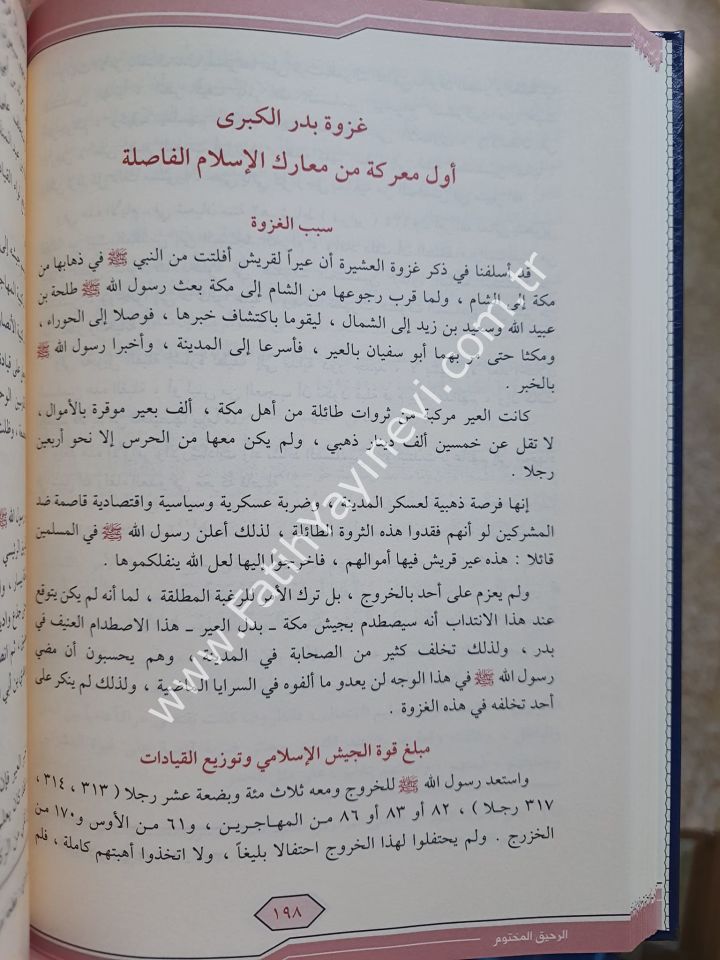 غزوة بدر الكبرى
أول معركة من معارك الإسلام الفاصلة
سبب الغزوة
قد أسلفنا في ذكر غزوة العشيرة أن عيراً لقريش أفلتت من النبي ﷺ في ذهابها من
مكة إلى الشام ، ولما قرب رجوعها من الشام إلى مكة بعث رسول الله ﷺ طلحة بن
عبيد الله وسعيد بن زيد إلى الشمال ، ليقوما باكتشاف خبرها ، فوصلا إلى الحوراء ،
ومكثا حتى مر بهما أبو سفيان بالعير ، فأسرعا إلى المدينة ، وأخبرا رسول الله ﷺ
بالخبر .
كانت العير مركبة من ثروات طائلة من أهل مكة ، ألف بعير موقرة بالأموال ،
لا تقل عن خمسين ألف دينار ذهبي ، ولم يكن معها من الحرس إلا نحو أربعين
رجلا .
إنها فرصة ذهبية لعسكر المدينة ، وضربة عسكرية وسياسية واقتصادية قاصمة ضد
المشركين لو أنهم فقدوا هذه الثروة الطائلة ، لذلك أعلن رسول الله ﷺ في المسلمين
قائلا : هذه عير قريش فيها أموالهم ، فاخرجوا إليها لعل الله ينفلكموها .
ولم يعزم على أحد بالخروج ، بل ترك الأمر للرغبة المطلقة ، لما أنه لم يكن يتوقع
عند هذا الانتداب أنه سيصطدم بجيش مكة ـ بدل العير ـ هذا الاصطدام العنيف في
بدر ، ولذلك تخلف كثير من الصحابة في المدينة ، وهم يحسبون أن مضي
رسول الله ﷺ في هذا الوجه لن يعدو ما ألفوه في السرايا الماضية ، ولذلك لم ينكر على
أحد تخلفه في هذه الغزوة .
مبلغ قوة الجيش الإسلامي وتوزيع القيادات
واستعد رسول الله ﷺ للخروج ومعه ثلاث مئة وبضعة عشر رجلا ( ٣١٣ ، ٣١٤ ،
٣١٧ رجلا ) ، ٨٢ أو ٨٣ أو ٨٦ من المهاجرين ، و٦١ من الأوس و١٧٠ من
الخزرج . ولم يحتفلوا لهذا الخروج احتفالا بليغاً ، ولا اتخذوا أهبتهم كاملة ، فلم
١٩٨
الرحيق المختوم
www.Fatihyayinevi.com.tr